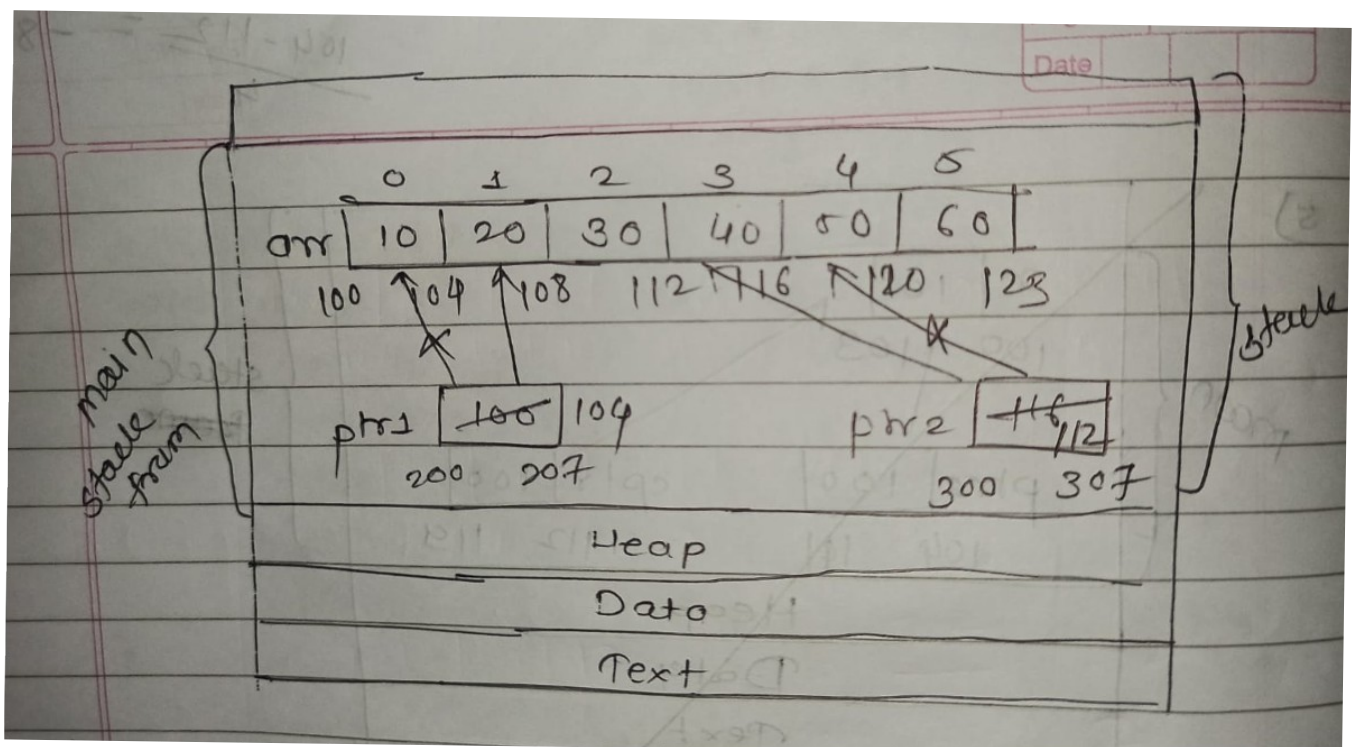 Date
0 1 2 3 4 5
arr 10 20 30 40 50 60
100 104 108 112 116 120 123
main
stack
fram
stack
ptr1 100 104
200 207
ptr2 116 112
300 307
Heap
Data
Text